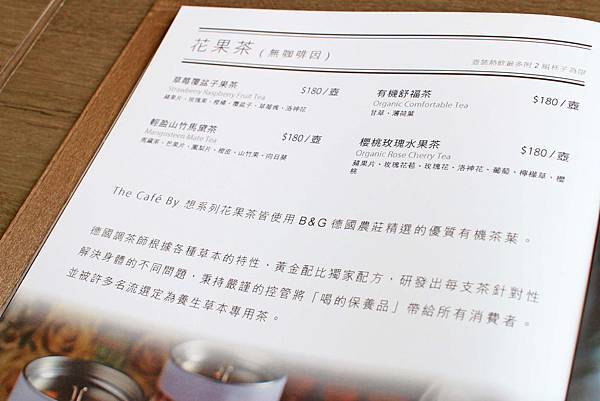 花果茶（無咖啡因）
壺裝熱飲最多附2組杯子為限
草莓覆盆子果茶 $180/壺
Strawberry Raspberry Fruit Tea
蘋果片、玫瑰果、柑橘、覆盆子、草莓塊、洛神花
有機舒福茶 $180/壺
Organic Comfortable Tea
甘草、薄荷葉
輕盈山竹馬黛茶 $180/壺
Mangosteen Mate Tea
馬黛茶、芒果片、鳳梨片、橙皮、山竹果、向日葵
櫻桃玫瑰水果茶 $180/壺
Organic Rose Cherry Tea
蘋果片、玫瑰花苞、玫瑰花、洛神花、葡萄、檸檬草、櫻
桃
The Café By 想系列花果茶皆使用 B&G 德國農莊精選的優質有機茶葉。
德國調茶師根據各種草本的特性，黃金配比獨家配方，研發出每支茶針對性
解決身體的不同問題，秉持嚴謹的控管將「喝的保養品」帶給所有消費者。
並被許多名流選定為養生草本專用茶。